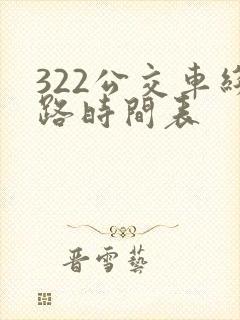 322公交車終
路時間表
晋雪藝